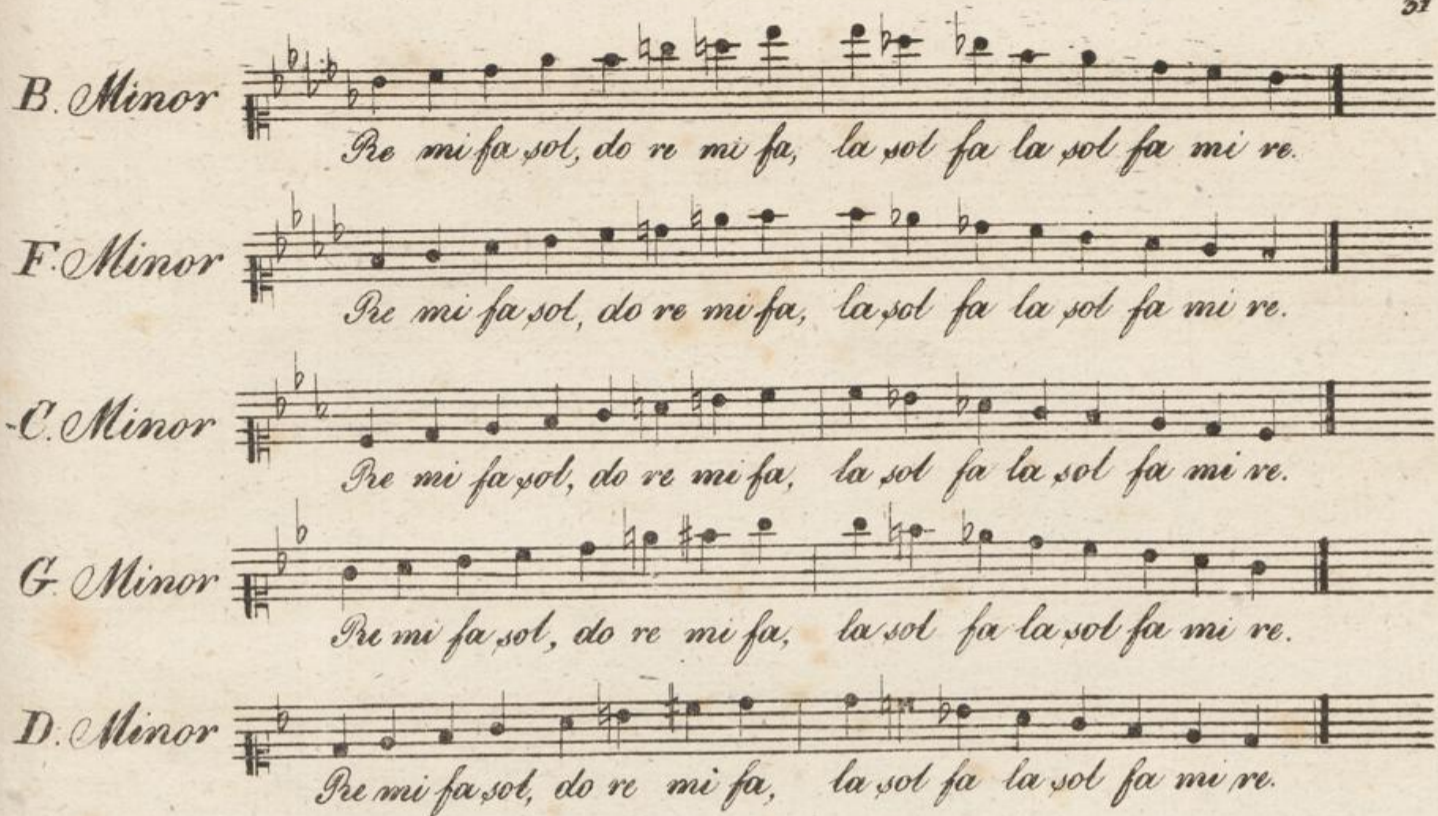 31
B. Minor
Re mi fa sol, do re mi fa, la sol fa la sol fa mi re.
F. Minor
Re mi fa sol, do re mi fa, la sol fa la sol fa mi re.
C. Minor
Re mi fa sol, do re mi fa, la sol fa la sol fa mi re.
G. Minor
Re mi fa sol, do re mi fa, la sol fa la sol fa mi re.
D. Minor
Re mi fa sol, do re mi fa, la sol fa la sol fa mi re.